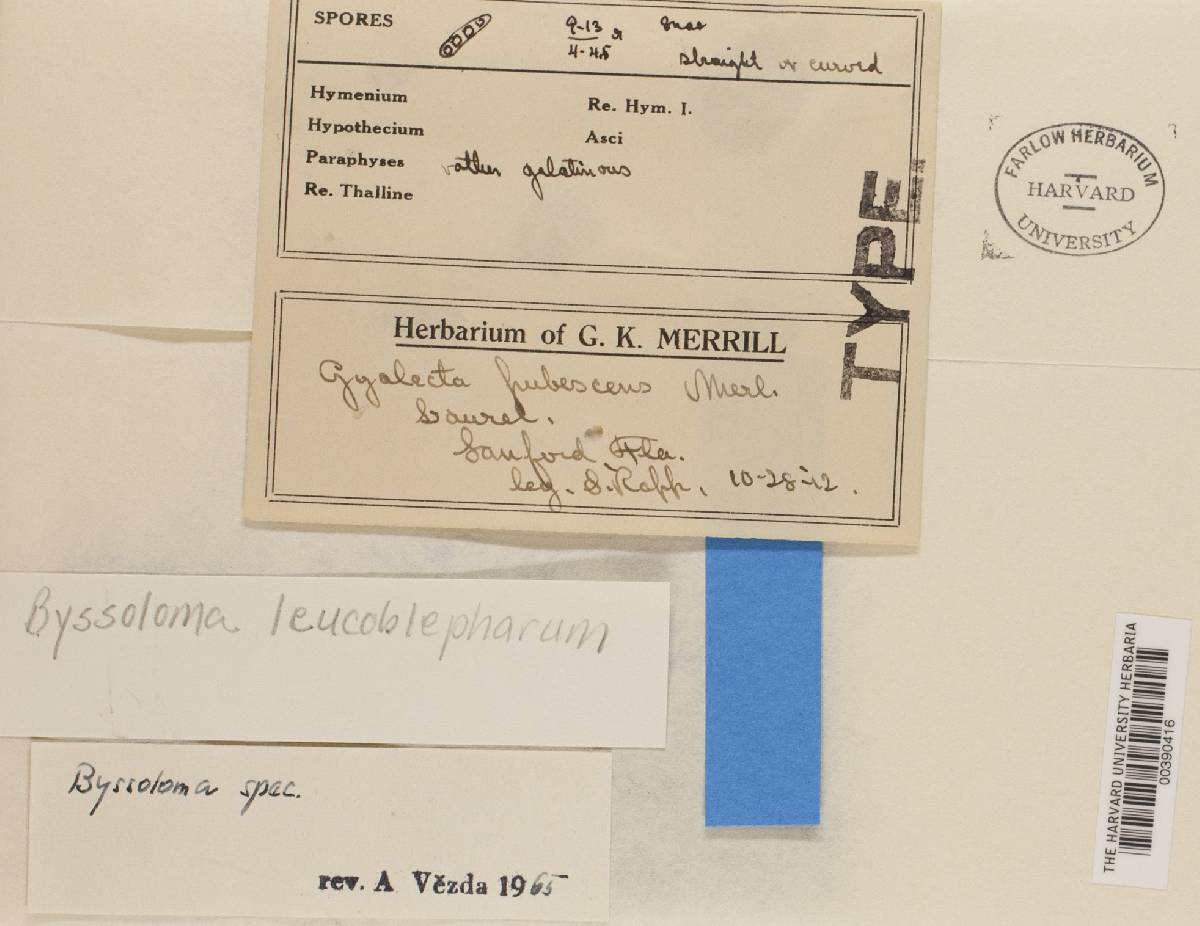 SPORES 9-13 4-4.5
straight or curved
Hymenium Re. Hym. I.
Hypothecium Asci
Paraphyses rather gelatinous
Re. Thalline
TYPE
FARLOW HERBARIUM
HARVARD
UNIVERSITY
Herbarium of G. K. MERRILL
Gyalecta pubescens Merl.
Laurel.
Sanford Fla.
leg. S. Rapp. 10-28-12.
Byssoloma leucoblepharum
Byssoloma spec.
rev. A Vězda 1965
THE HARVARD UNIVERSITY HERBARIA
00390416